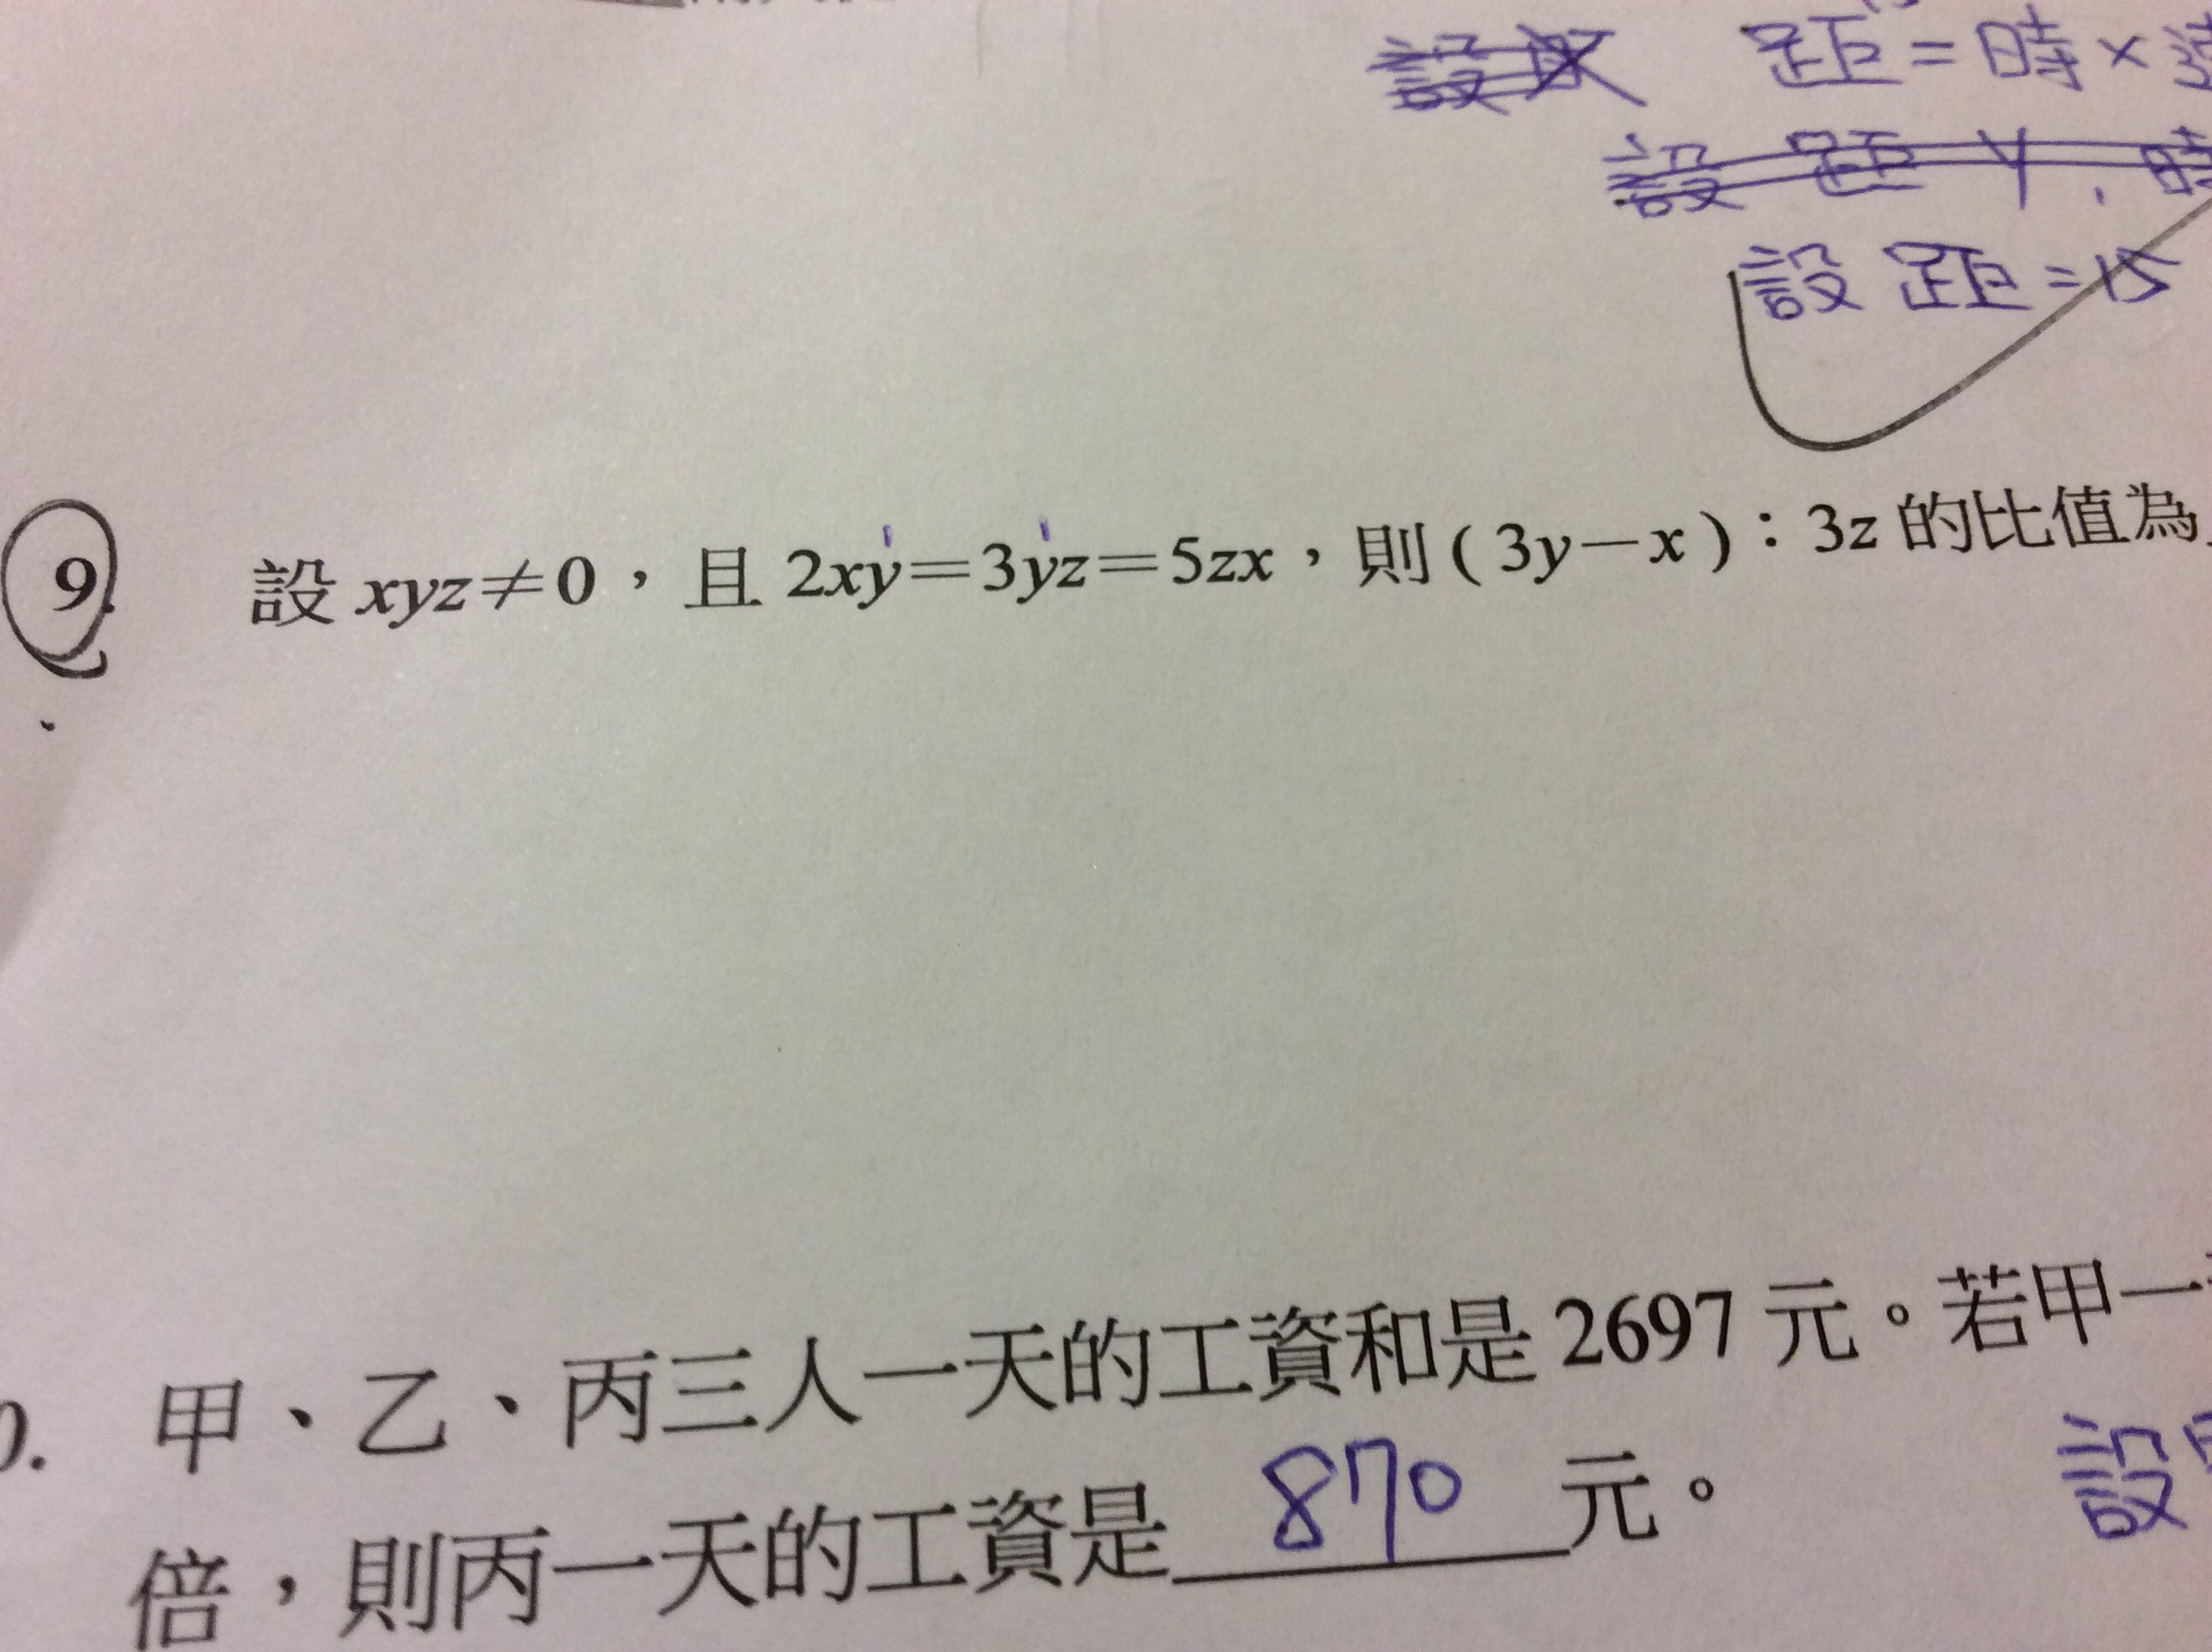 距=時×
設 距=15
9. 設 xyz≠0,且 2xy=3yz=5zx,則(3y－x):3z 的比值為
甲、乙、丙三人一天的工資和是 2697 元。若甲一
設
倍,則丙一天的工資是 870 元。